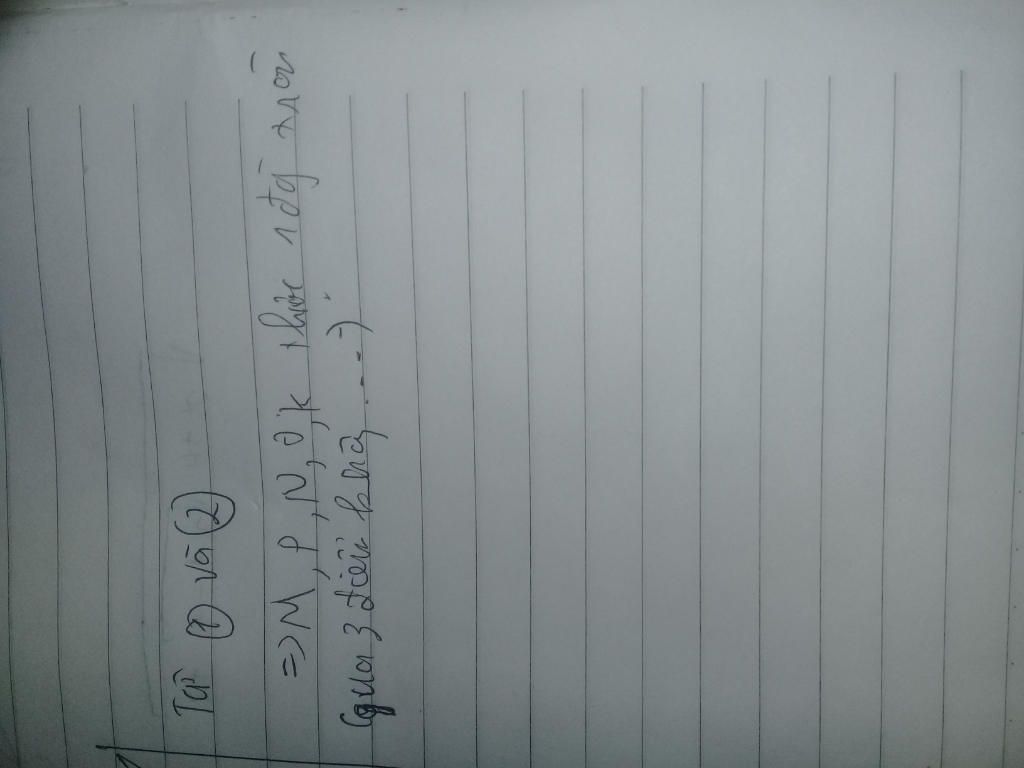 Từ (1) và (2)
=> M, P, N, O, K thuộc 1 đg tròn
(qua 3 điểm khôg ... => )